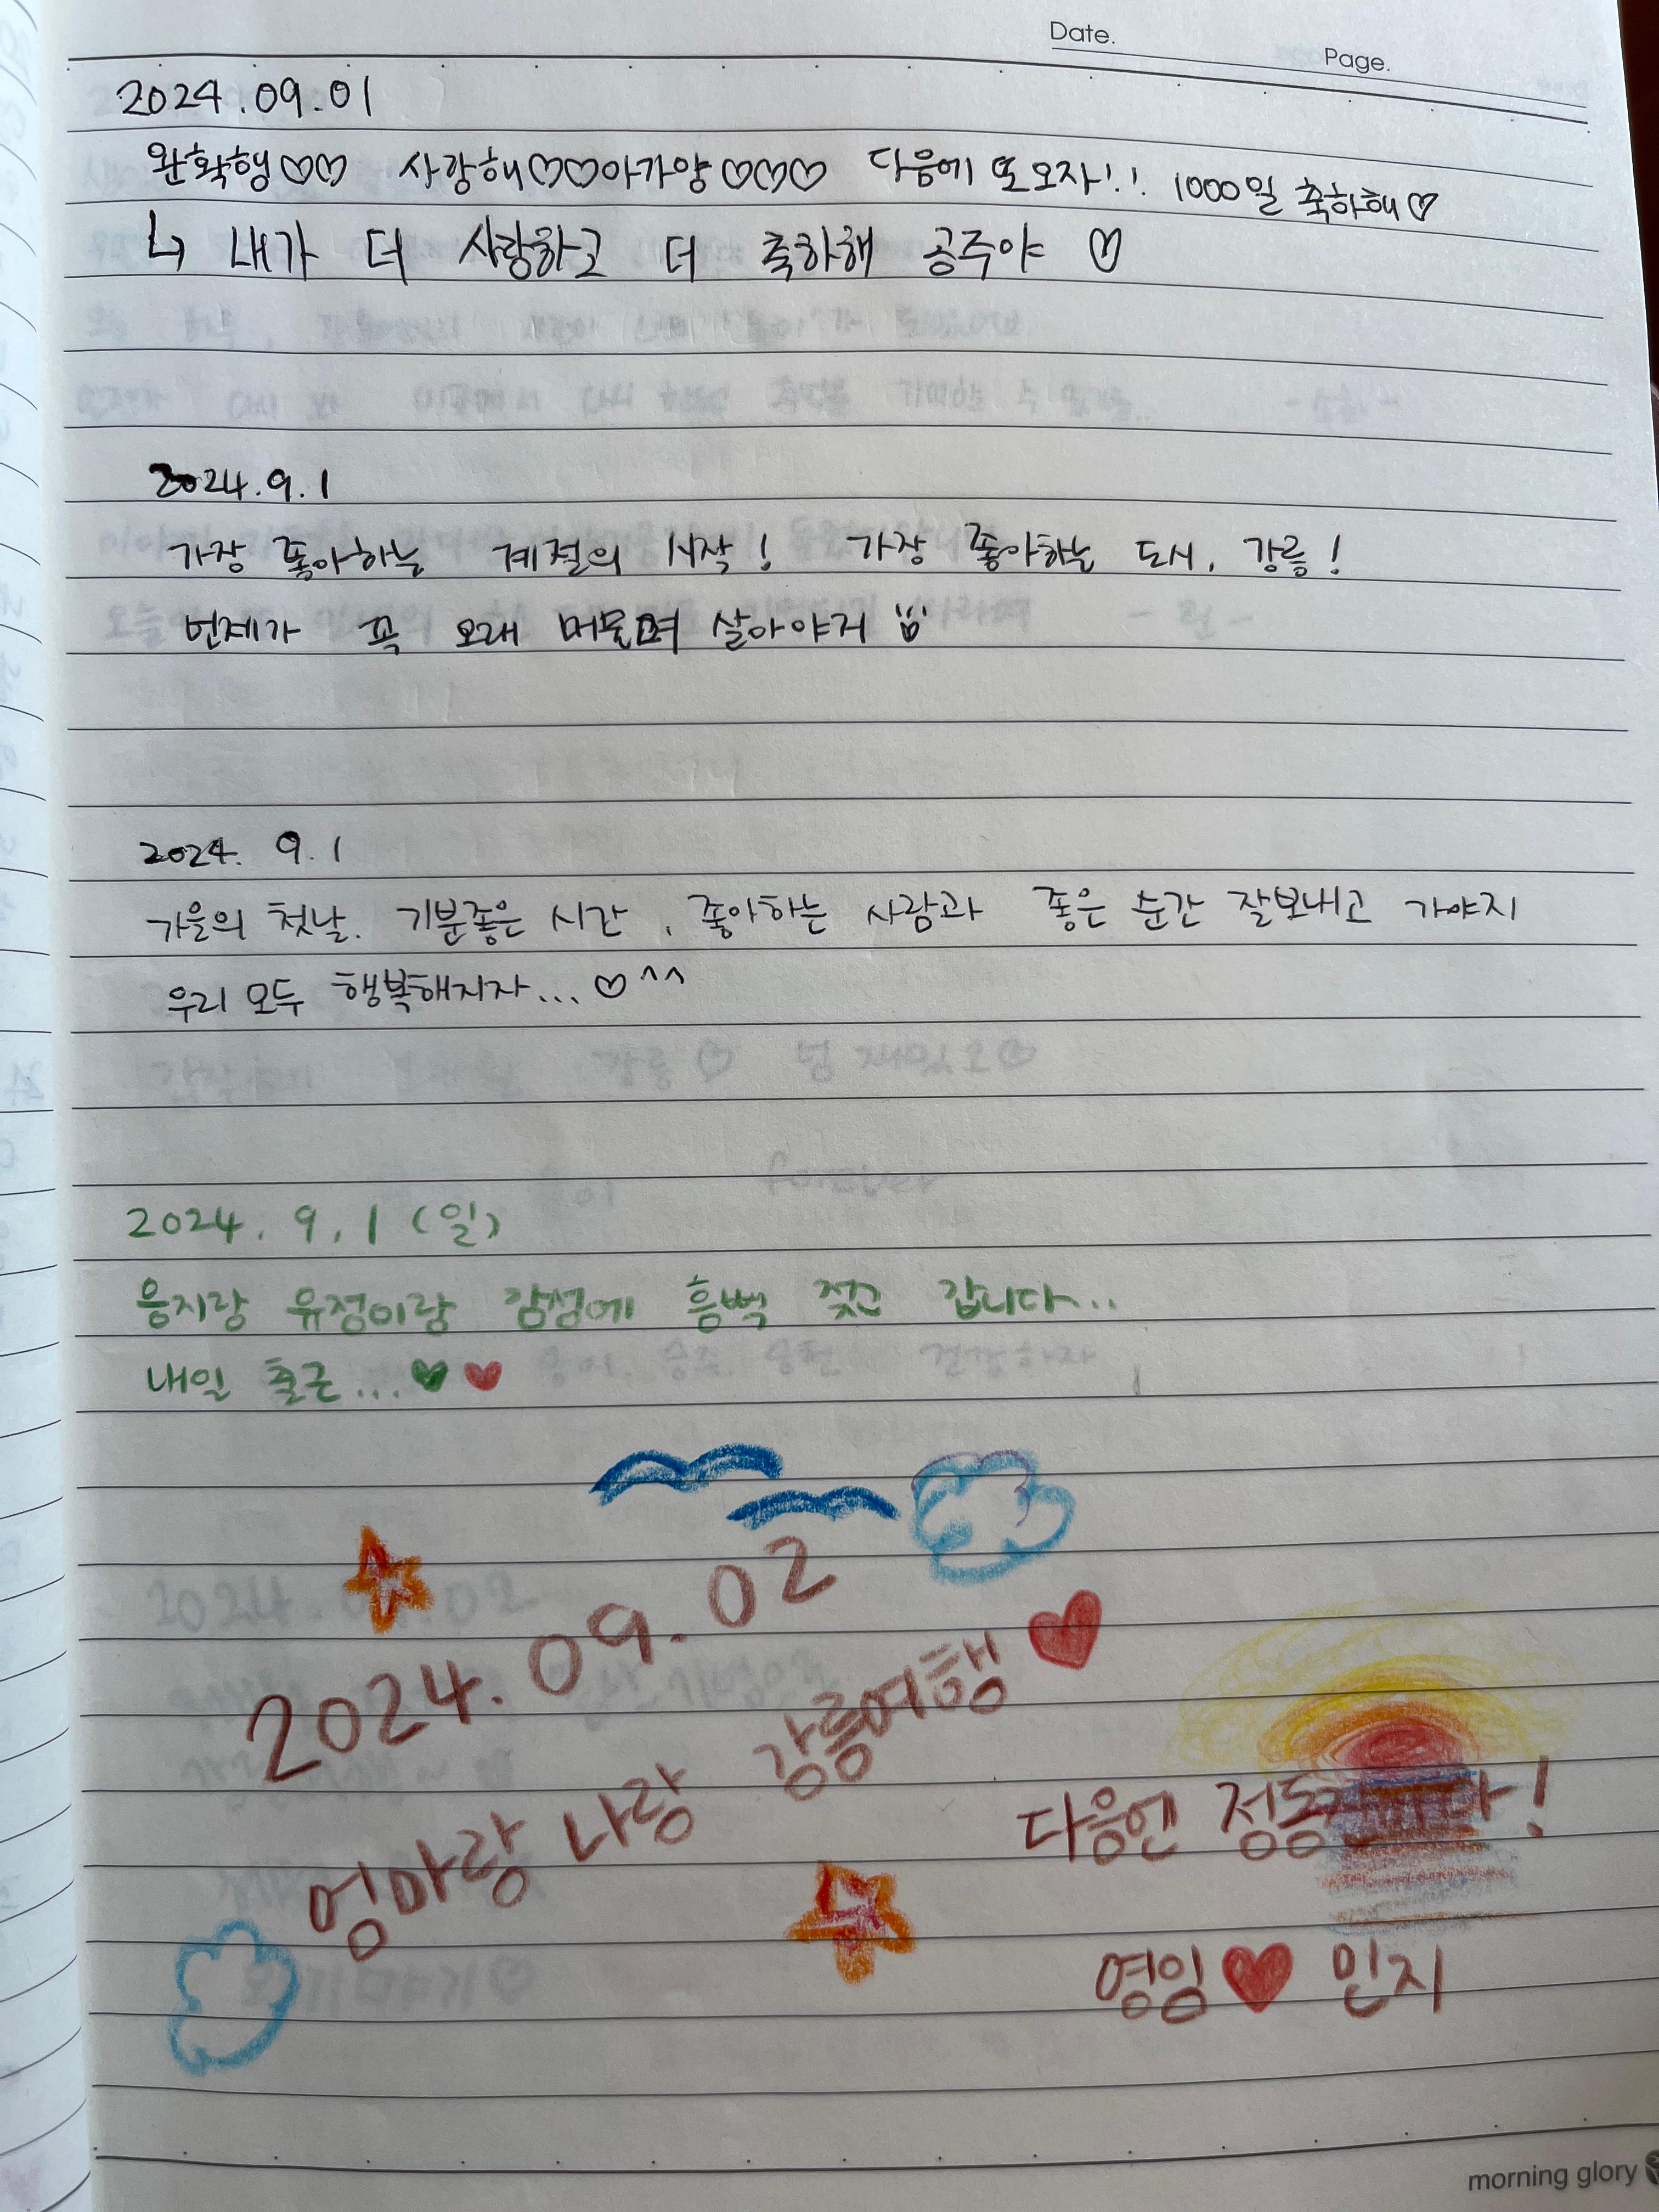 Date.
Page.
2024.09.01
완확행♡♡ 사랑해♡♡아가양♡♡♡ 다음에 또 오자!! 1000일 축하해♡
↳ 내가 더 사랑하고 더 축하해 공주야 ♡
2024.9.1
가장 좋아하는 계절의 시작! 가장 좋아하는 도시, 강릉!
언제가 꼭 오래 머물며 살아야지
2024. 9.1
가을의 첫날. 기분좋은 시간, 좋아하는 사람과 좋은 순간 잘보내고 가야지
우리 모두 행복해지자...♡^^
2024. 9. 1 (일)
융지랑 유정이랑 감성에 흠뻑 젖고 갑니다...
내일 출근...♥♥
2024.09.02
엄마랑 나랑 강릉여행♥
다음엔 !
영임♥민지
morning glory